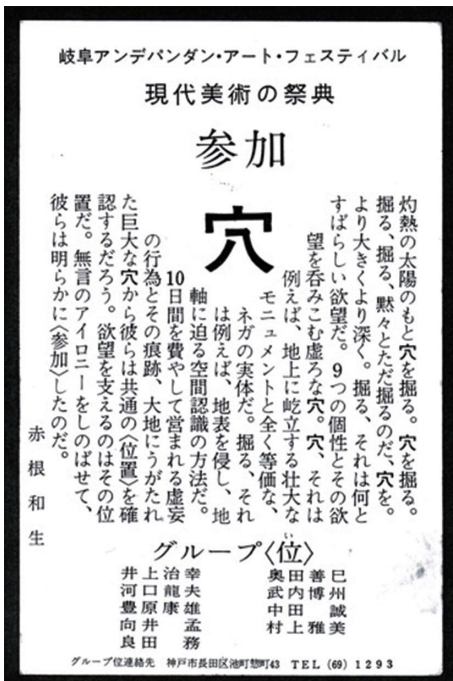 岐阜アンデパンダン・アート・フェスティバル
現代美術の祭典
参加
穴
灼熱の太陽のもと穴を掘る。穴を掘る。
掘る、掘る、黙々とただ掘るのだ、穴を。
より大きくより深く。掘る、それは何と
すばらしい欲望だ。9つの個性とその欲
望を呑みこむ虚ろな穴。穴、それは
例えば、地上に屹立する壮大な
モニュメントと全く等価な、
ネガの実体だ。掘る、それ
は例えば、地表を侵し、地
軸に迫る空間認識の方法だ。
10日間を費やして営まれる虚妄
の行為とその痕跡、大地にうがたれ
た巨大な穴から彼らは共通の〈位置〉を確
認するだろう。欲望を支えるのはその位
置だ。無言のアイロニーをしのばせて、
彼らは明らかに〈参加〉したのだ。
赤根和生
グループ〈位〉
い
井上治幸
河口龍夫
豊原康雄
向井孟
良田務
奥田善巳
武内博州
中田誠
村上雅美
グループ位連絡先 神戸市長田区池町惣町43 TEL (69) 1293